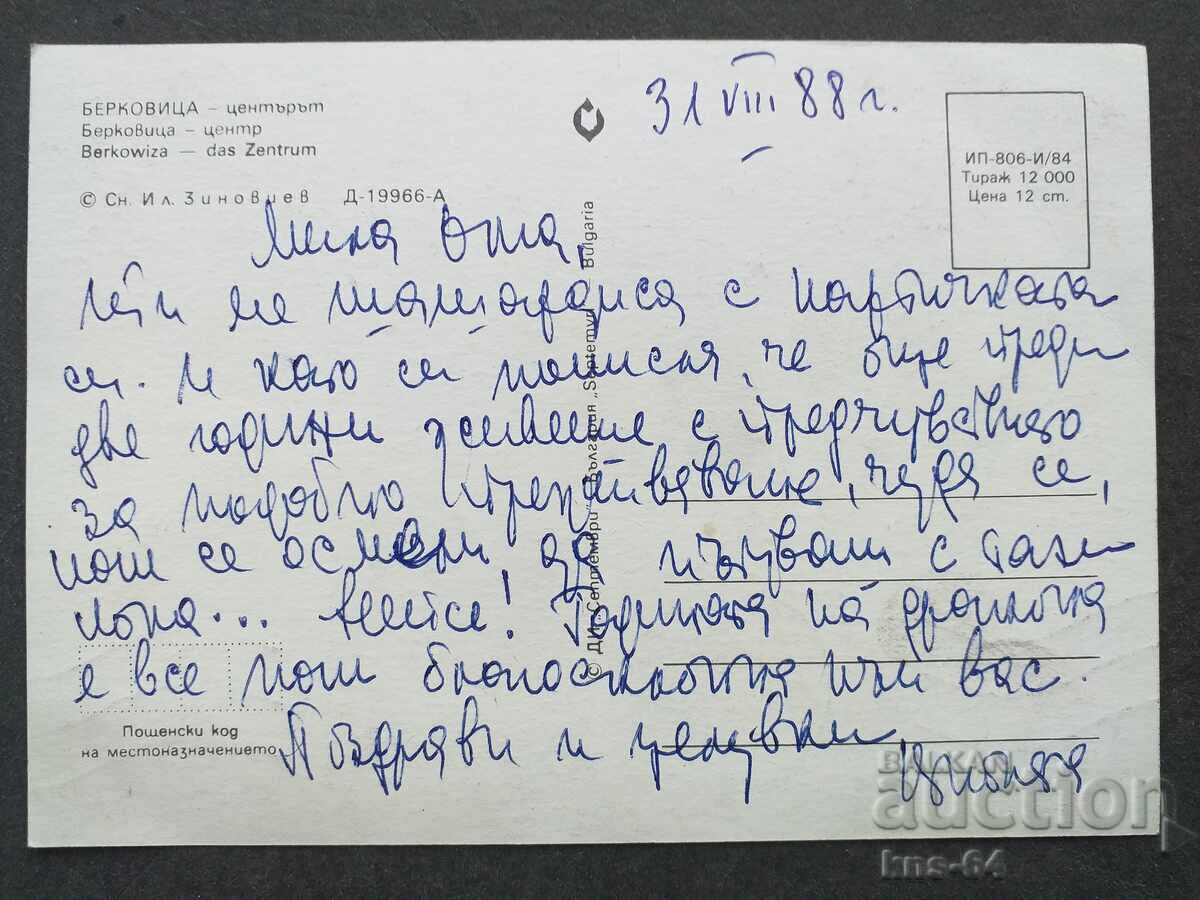 БЕРКОВИЦА – центърът
Берковица – центр
Berkowiza — das Zentrum
© Сн. Ил. Зиновиев Д-19966-А
31 VIII 88 г.
ИП-806-И/84
Тираж 12 000
Цена 12 ст.
© ДИ „Септември“ България „Septemvri“ Bulgaria
Мила
ме шашардиса с картичката
си. И като си помисля, че още преди
две години живееше с предчувствието
за подобно чудя се,
как се осмели да пътуваш с тази
кола... Годината на дракона
е все още благосклонна към вас.
Поздрави и целувки
Пощенски код
на местоназначението
BALKAN
auction
kns-64